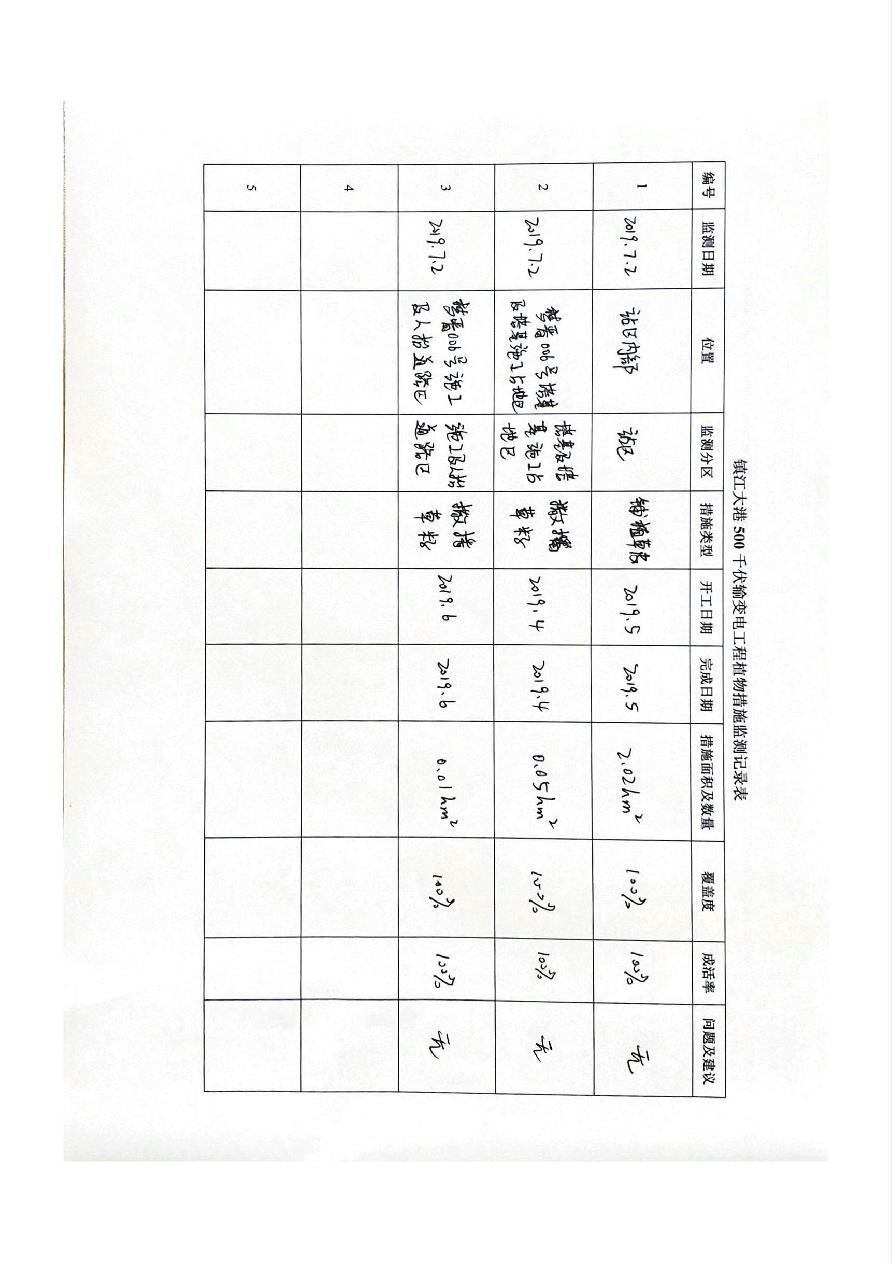 镇江大港 500 千伏输变电工程植物措施监测记录表
编号 监测日期 位置 监测分区 措施类型 开工日期 完成日期 措施面积及数量 覆盖度 成活率 问题及建议
1 2019.7.2 站区内部 站区 铺植草皮 2019.5 2019.5 2.02hm² 100% 100% 无
2 2019.7.2 梦晋006号塔基
及塔基施工占地区 塔基及塔
基施工占
地区 撒播
草籽 2019.4 2019.4 0.05hm² 100% 100% 无
3 2019.7.2 梦晋006号施工
及人抬道路区 施工及人抬
道路区 撒播
草籽 2019.6 2019.6 0.01hm² 100% 100% 无
4
5